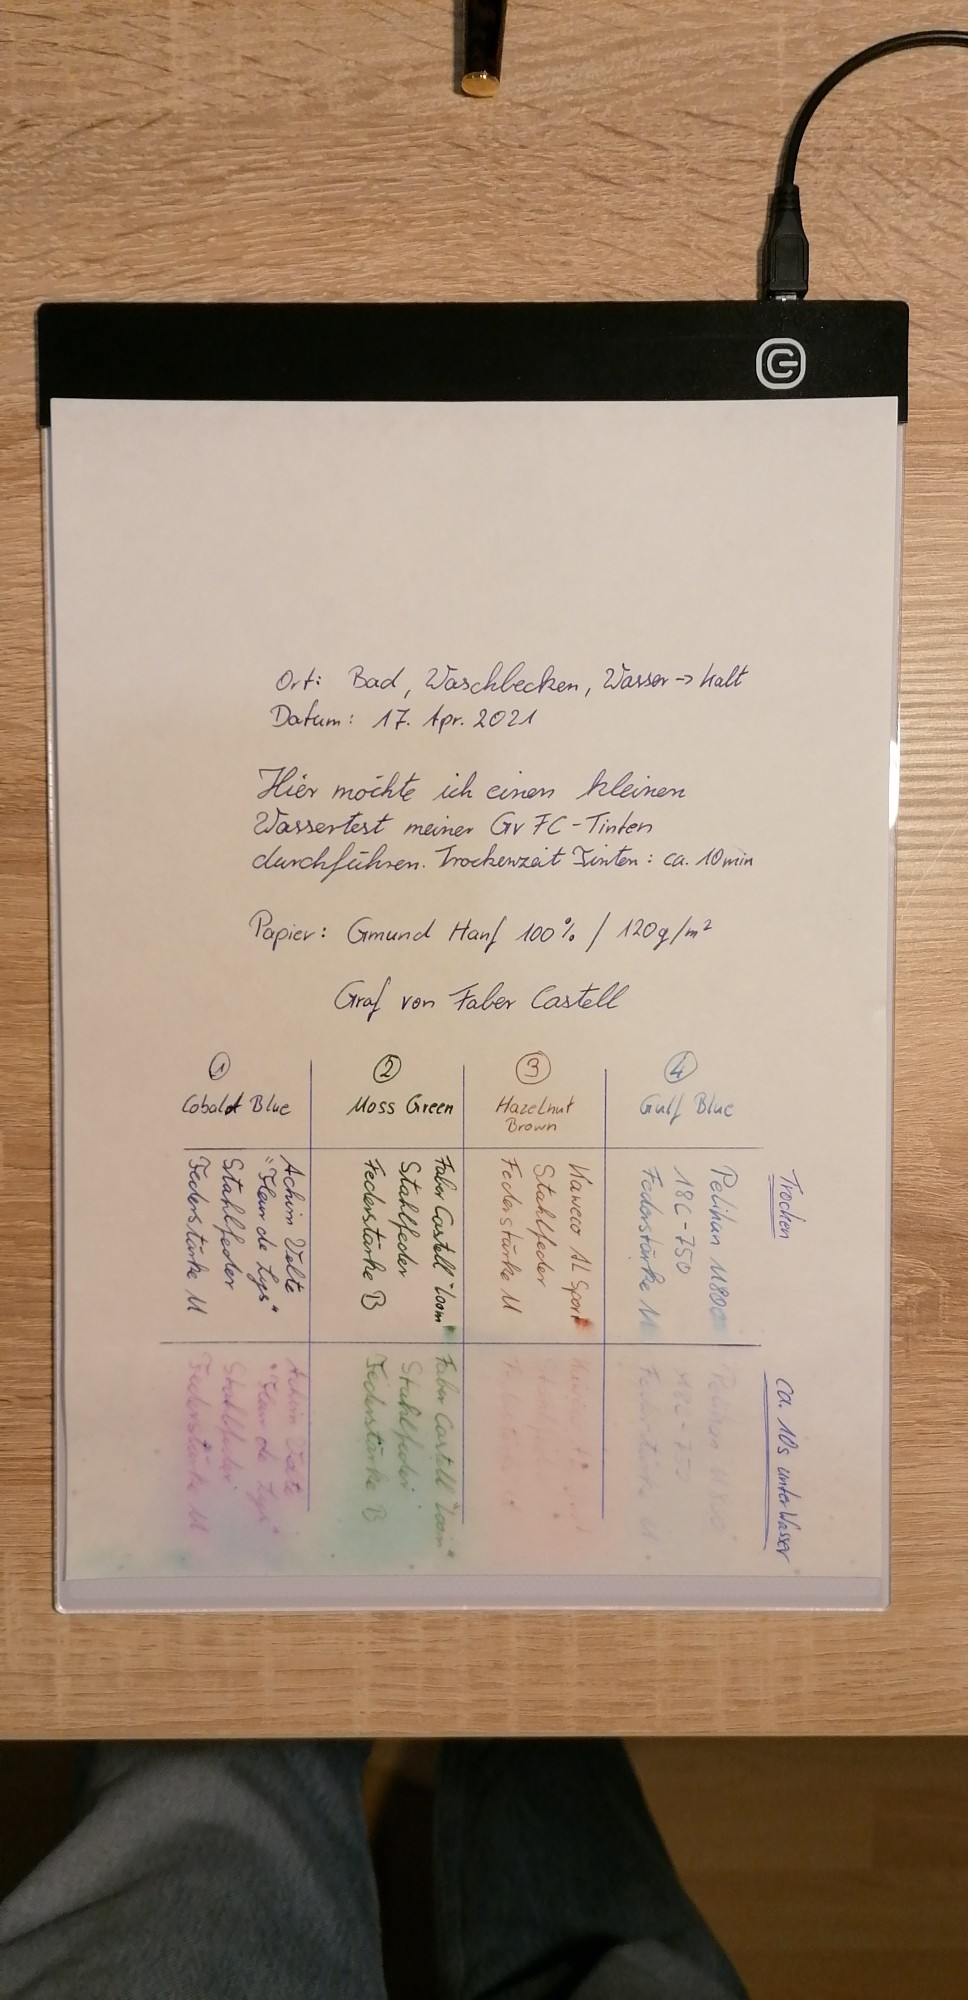 Ort: Bad, Waschbecken, Wasser → kalt
Datum: 17. Apr. 2021
Hier möchte ich einen kleinen
Wassertest meiner GvFC-Tinten
durchführen. Trockenzeit Tinten: ca. 10min
Papier: Gmund Hanf 100% / 120g/m²
Graf von Faber Castell
1
Cobalt Blue
2
Moss Green
3
Hazelnut
Brown
4
Gulf Blue
Achim Velte
"Fleur de Lys"
Stahlfeder
Federstärke M
Faber Castell "Loom"
Stahlfeder
Federstärke B
Kaweco AL Sport
Stahlfeder
Federstärke M
Pelikan M800
18C-750
Federstärke M
Trocken
Achim Velte
"Fleur de Lys"
Stahlfeder
Federstärke M
Faber Castell "Loom"
Stahlfeder
Federstärke B
Pelikan M800
18C-750
Federstärke M
ca. 10s unter Wasser